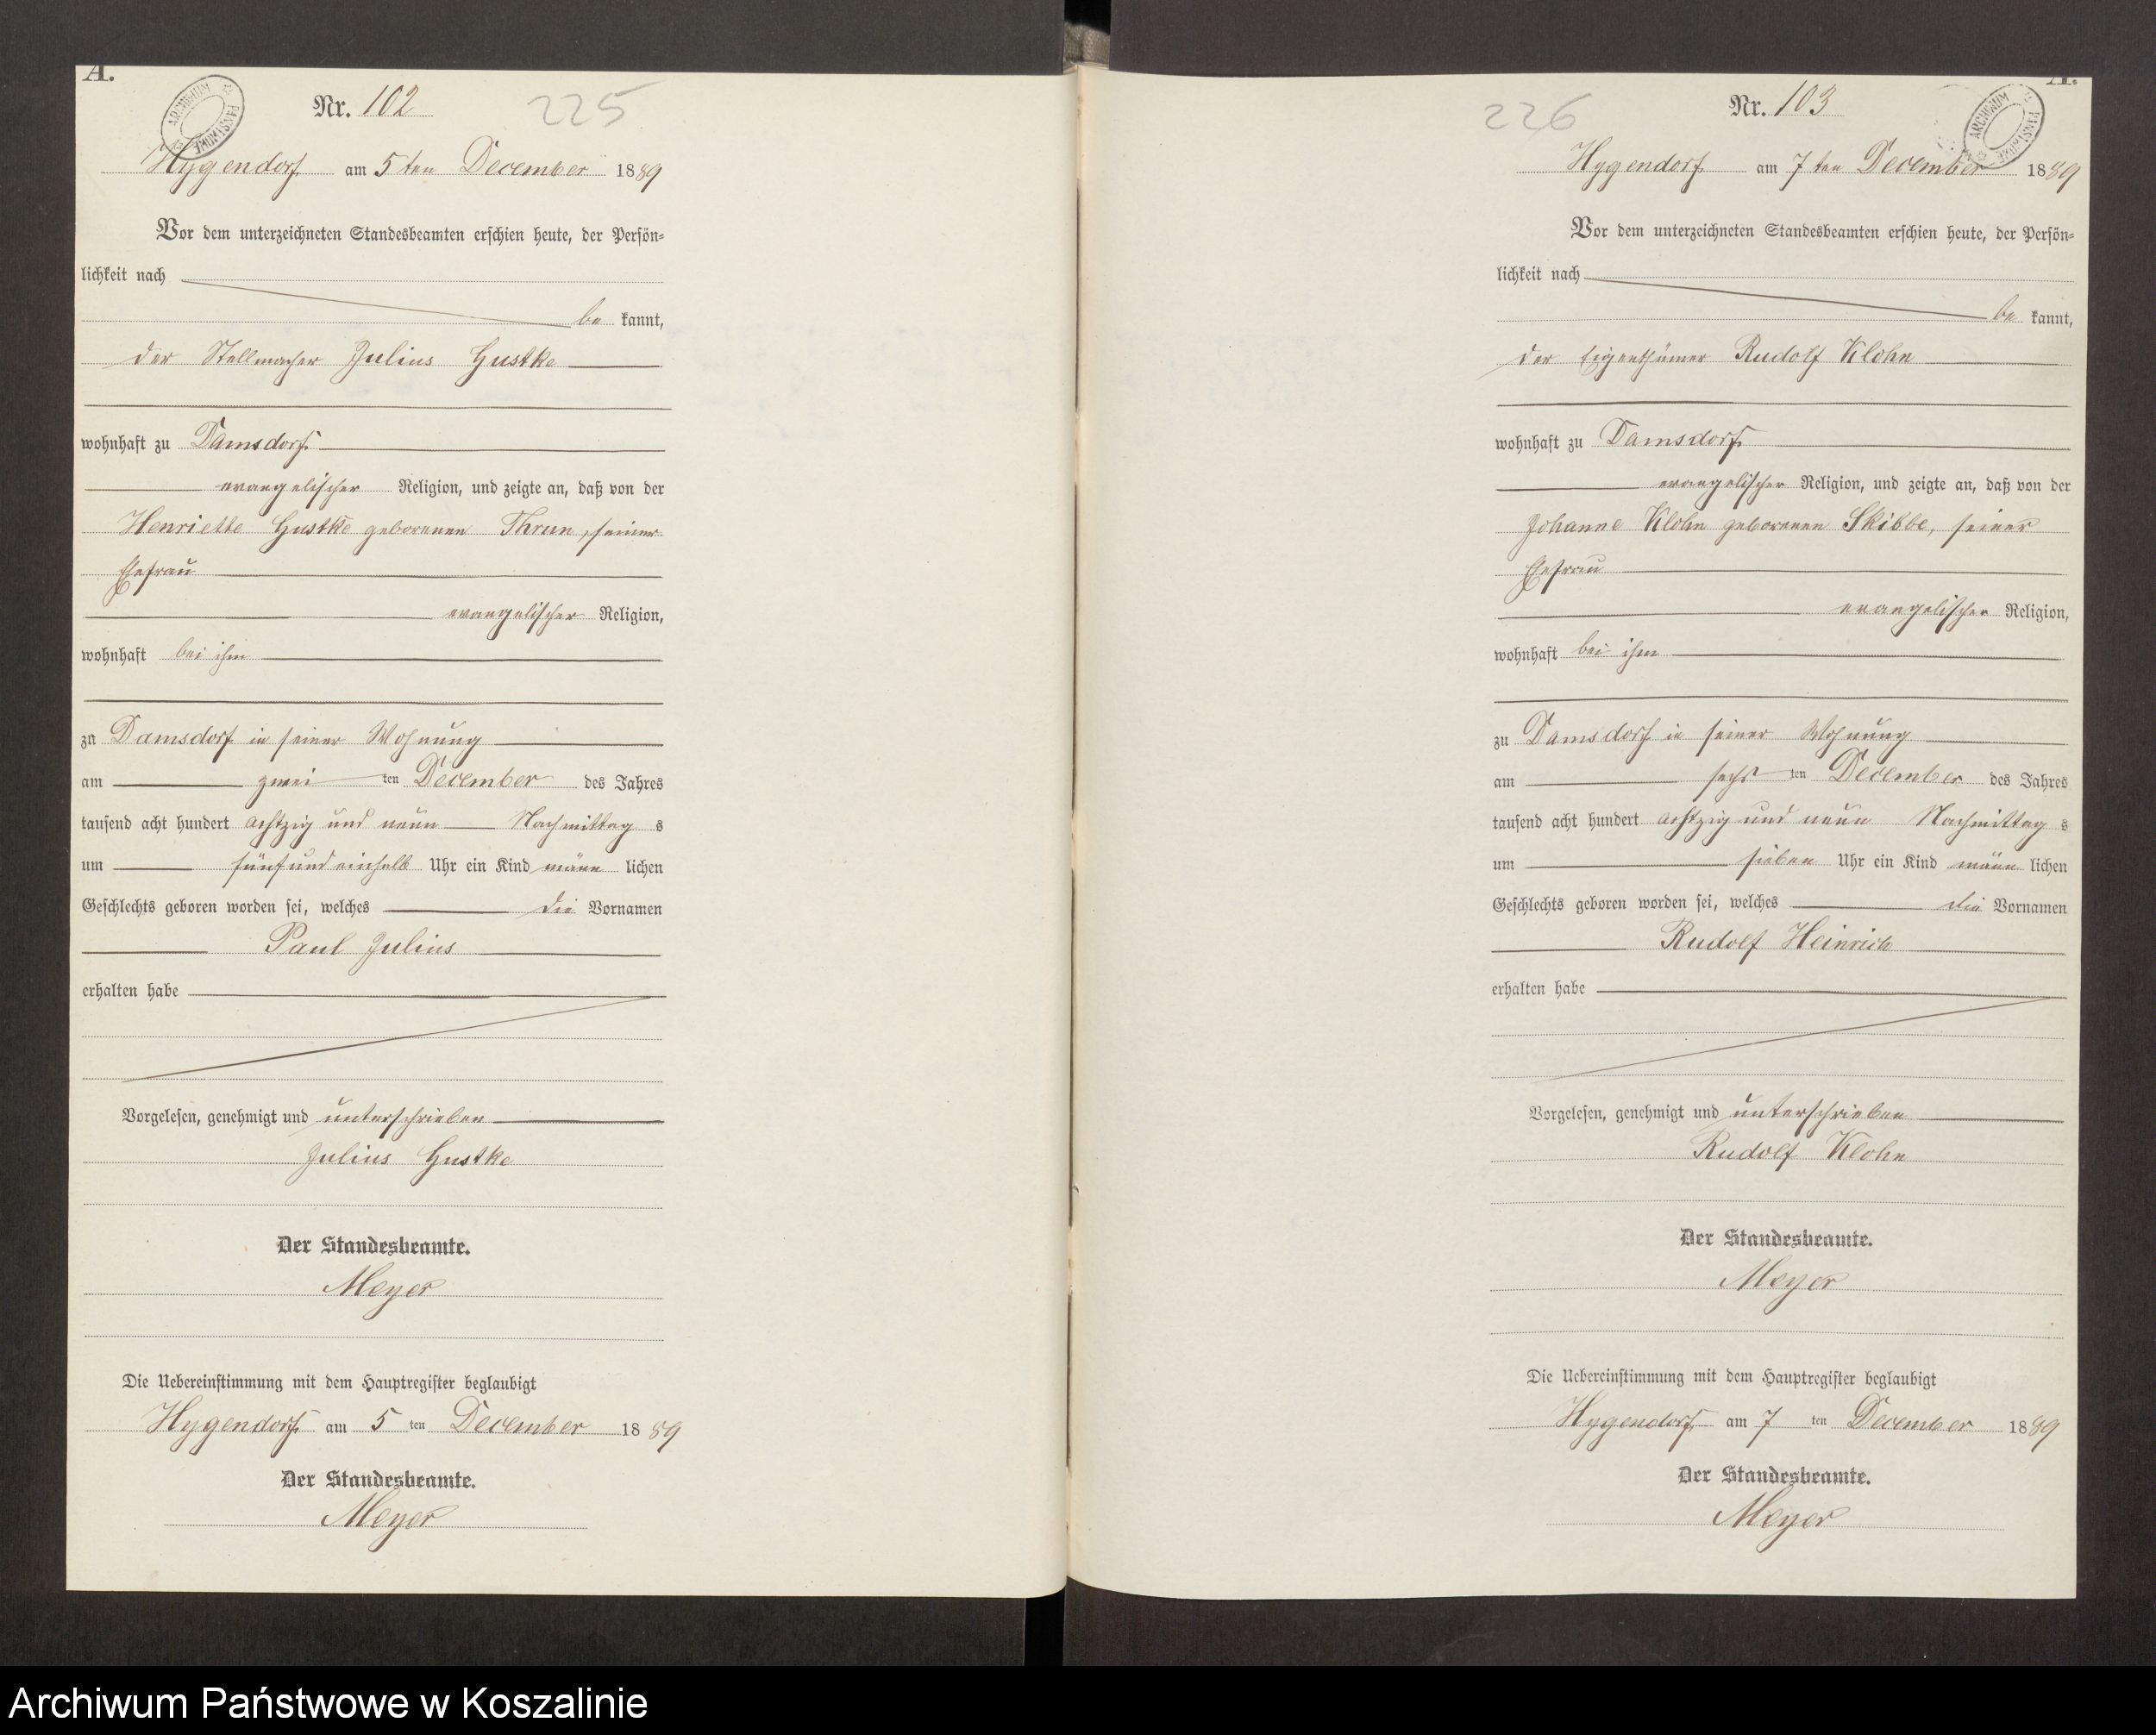 A.
ARCHIWUM PAŃSTWOWE
Nr. 102
225
Hygendorf am 5ten December 1889
Vor dem unterzeichneten Standesbeamten erschien heute, der Persön-
lichkeit nach
be kannt,
der Stellmacher Julius Gustke
wohnhaft zu Damsdorf
evangelischer Religion, und zeigte an, daß von der
Henriette Gustke geborenen Thrun, seiner
Ehefrau
evangelischer Religion,
wohnhaft bei ihm
zu Damsdorf in seiner Wohnung
am zwei ten December des Jahres
tausend acht hundert achtzig und neun Nachmittag s
um fünf und einhalb Uhr ein Kind männ lichen
Geschlechts geboren worden sei, welches die Vornamen
Paul Julius
erhalten habe
Vorgelesen, genehmigt und unterschrieben
Julius Gustke
Der Standesbeamte.
Meyer
Die Uebereinstimmung mit dem Hauptregister beglaubigt
Hygendorf am 5 ten December 1889
Der Standesbeamte.
Meyer
A.
ARCHIWUM PAŃSTWOWE
226
Nr. 103
Hygendorf am 7ten December 1889
Vor dem unterzeichneten Standesbeamten erschien heute, der Persön-
lichkeit nach
be kannt,
der Eigenthümer Rudolf Klohn
wohnhaft zu Damsdorf
evangelischer Religion, und zeigte an, daß von der
Johanne Klohn geborenen Skibbe, seiner
Ehefrau
evangelischer Religion,
wohnhaft bei ihm
zu Damsdorf in seiner Wohnung
am sechs ten December des Jahres
tausend acht hundert achtzig und neun Nachmittag s
um sieben Uhr ein Kind männ lichen
Geschlechts geboren worden sei, welches die Vornamen
Rudolf Heinrich
erhalten habe
Vorgelesen, genehmigt und unterschrieben
Rudolf Klohn
Der Standesbeamte.
Meyer
Die Uebereinstimmung mit dem Hauptregister beglaubigt
Hygendorf am 7 ten December 1889
Der Standesbeamte.
Meyer
Archiwum Państwowe w Koszalinie